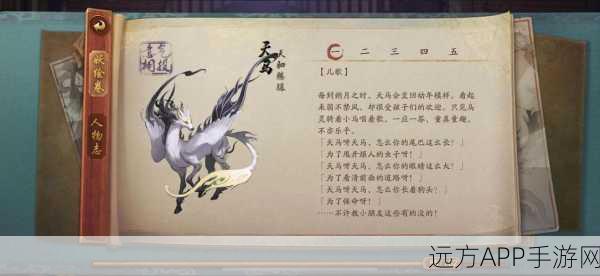 妖绘卷
人物志
天马
一 二 三 四 五
【儿歌】
每到朔月之时，天马会变回幼年模样，看起
来弱不禁风，却很受孩子们的欢迎。只见乌
灵骑着小马唱着歌，一应一答，童真童趣，
不亦乐乎。
「天马呀天马，怎么你的尾巴这么长？」
「为了甩开烦人的虫子呀！」
「天马呀天马，怎么你的眼睛这么大？」
「为了看清前面的道路呀！」
「天马呀天马，怎么你长着狗头？」
「为了保命呀！」
……不许教小朋友这些有的没的！
远方APP手游网